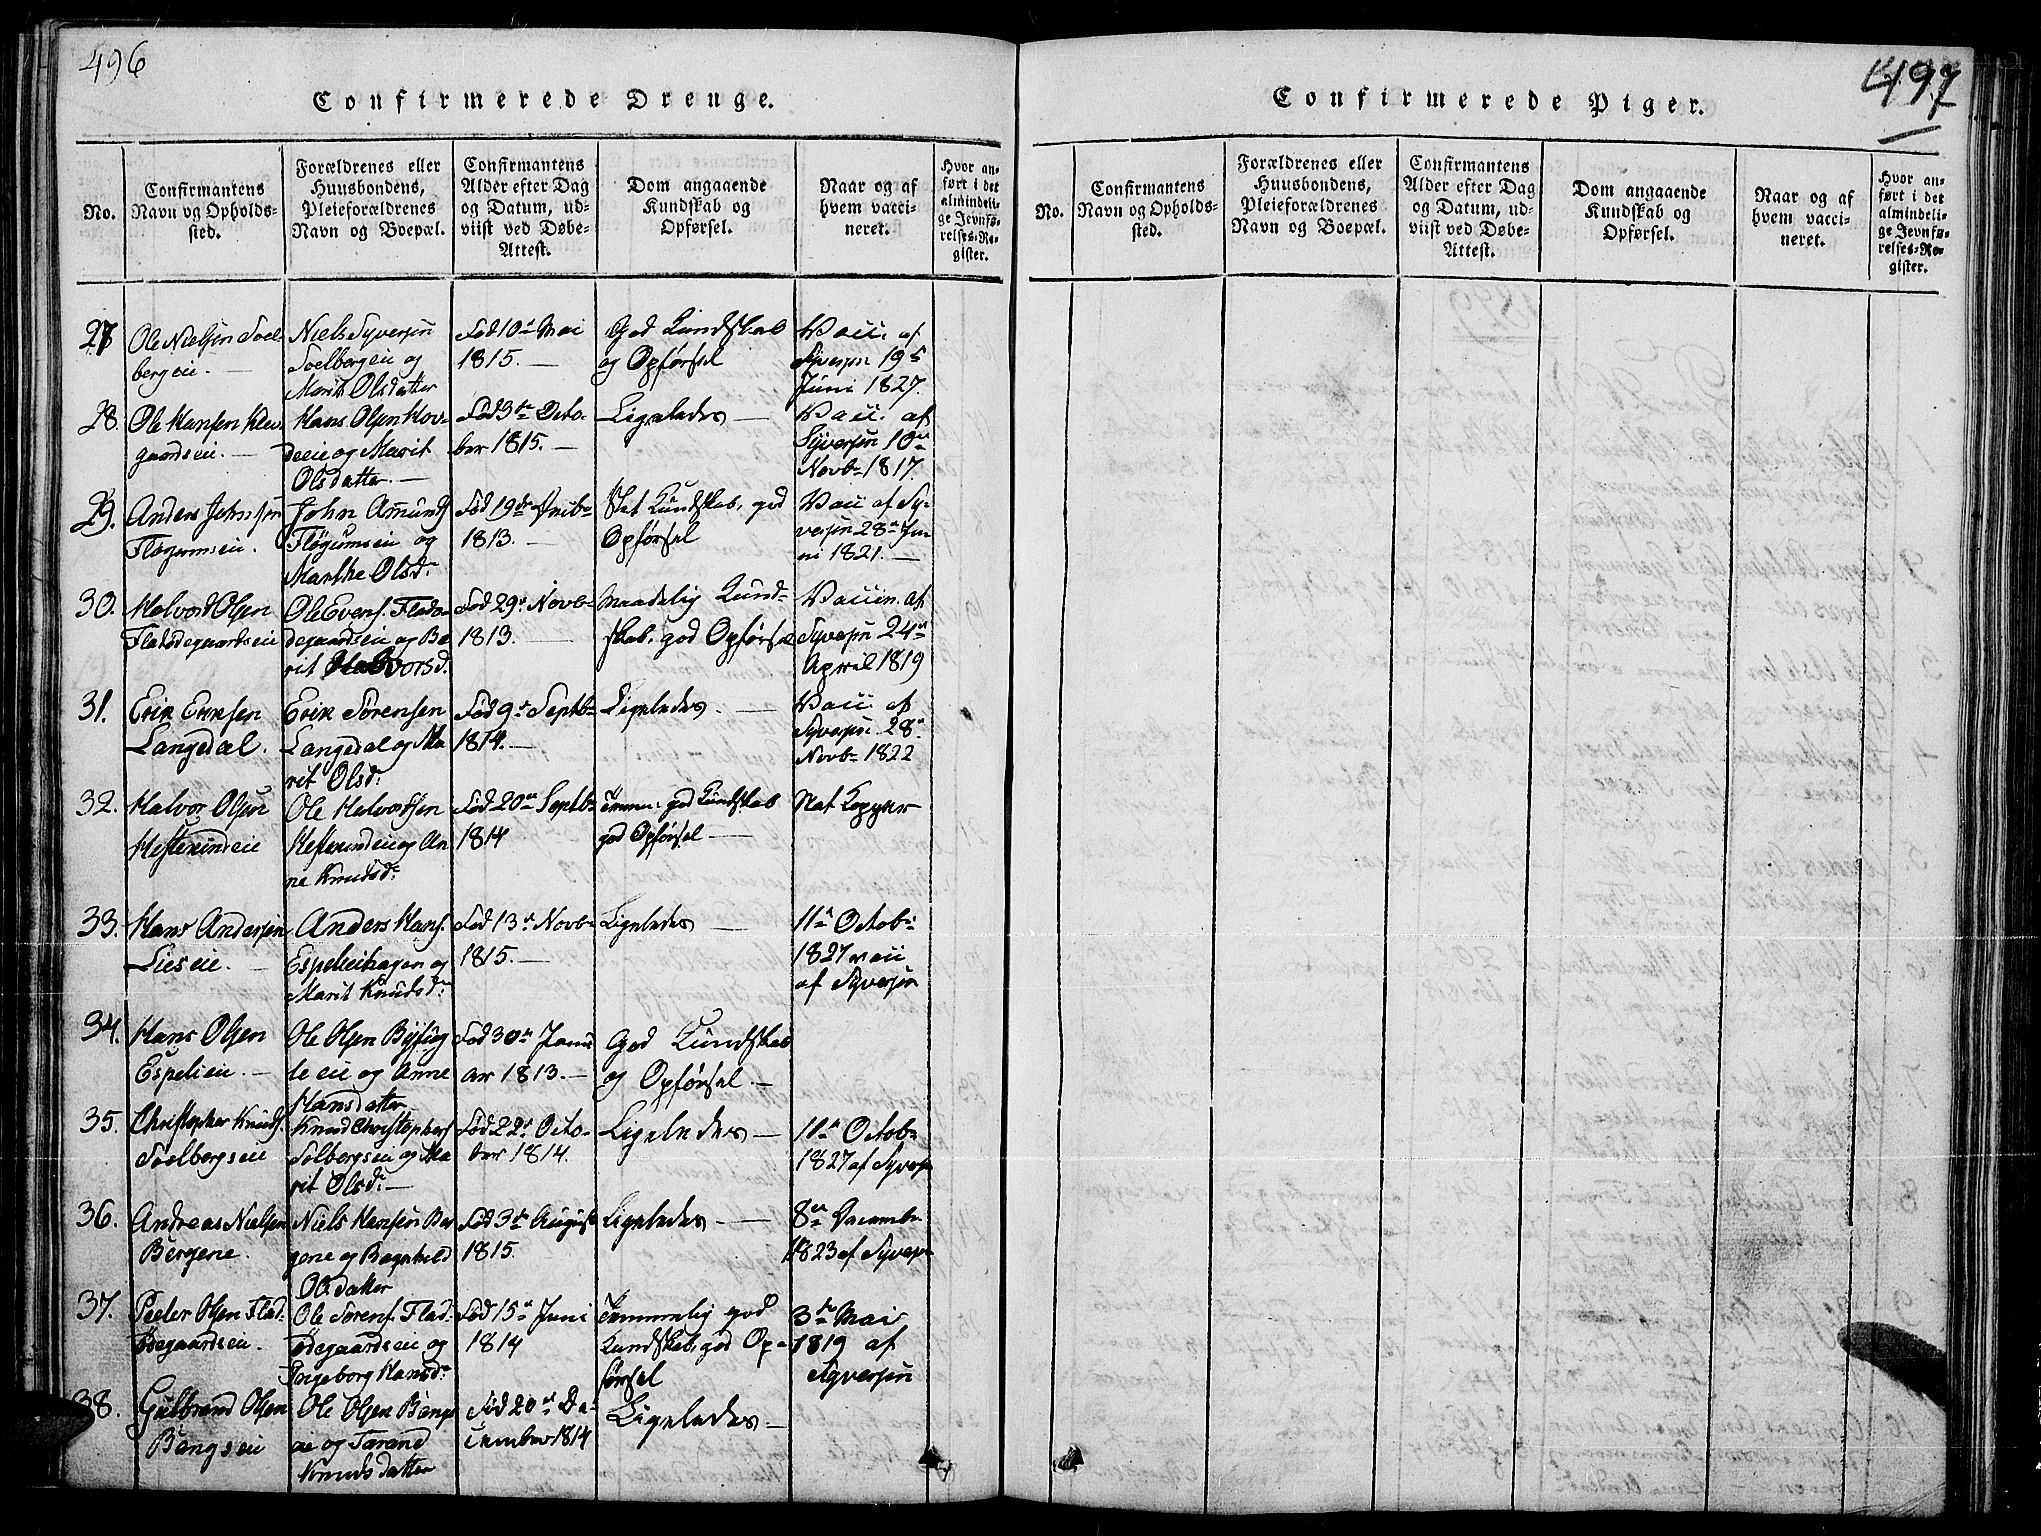 496
Confirmerede Drenge.
No.
Confirmantens
Navn og Opholds-
sted.
Forældrenes eller
Huusbondens,
Pleieforældrenes
Navn og Boepæl.
Confirmantens
Alder efter Dag
og Datum, ud-
viist ved Døbe-
Attest.
Dom angaaende
Kundskab og
Opførsel.
Naar og af
hvem vacci-
neret.
Hvor an-
ført i det
almindeli-
ge Jevnfø-
relses-Re-
gister.
27
Ole Nielsen Soel-
bergeie.
Niels Syversen
Soelbergeie og
Marit Olsdatter
Fød 10de Mai
1815.
God Kundskab
og Opførsel
Vacc. af
Syversen 19de
Juni 1827.
28.
Ole Hansen
gaardseie.
Hans Olsen Hov-
deeie og Marit
Olsdatter.
Fød 3de Octo-
ber 1815.
Ligeledes
Vacc. af
Syversen 10de
Novb 1817.
29.
Anders Johnsen
Fløgumseie.
John Amunds
Fløgumseie og
Marthe Olsd.
Fød 19de
1813.
Slet Kundskab, god
Opførsel
Vacc af Sy-
versen 28de Ju-
ni 1821.
30.
Halvor Olsen
Fladødegaardseie
Ole Evens. Fladø-
degaardseie og Be-
rit Halvorsd.
Fød 29de Novb
1813.
Maadelig Kund-
skab, god Opførsel
Vaccn. af
Syversen 24de
April 1819
31.
Erik Eriksen
Langedal.
Erik Sørensen
Langedal og Ma-
rit Olsd.
Fød 9de Septb
1814.
Ligeledes.
Vacc af
Syversen 28de
Novb 1822
32.
Halvor Olsen
Hesterindeie
Ole Halvorsen
Hesterindeie og An-
ne Knudsd.
Fød 20de Septb
1814
Temm. god Kundskab
god Opførsel
Nat Kopper
33.
Hans Andersen
Lieseie.
Anders Hans.
Espelieihagen og
Marit Knudsd.
Fød 13de Novb
1815.
Ligeledes
11te Octob.
1827 vacc
af Syversen
34.
Hans Olsen
Espelieie.
Ole Olsen
og Anne
Hansdatter
Fød 30te Janu
ar 1813.
God Kundskab
og Opførsel.
35.
Christopher Knuds.
Soelbergseie
Knud Christophers
Solbergseie og Ma
rit Olsd.
Fød 22de Octo-
ber 1814.
Ligeledes
11te Octob.
1827 af Syversen
36.
Andreas Nielsen
Bergene.
Niels Hansen Ber
gene og Ragnhild
Olsdatter
Fød 3de August
1815.
Ligeledes
8de Decembr
1823 af Syversen
37.
Peder Olsen Flad-
ødegaardseie.
Ole Sørens. Flad-
ødegaardseie og
Ingeborg Hansd.
Fød 15de Juni
1814
Temmelig god
Kundskab, god Op-
førsel
3de Mai
1819 af
Syversen
38.
Gulbrand Olsen
Bangseie
Ole Olsen Bangs
eie og Tarand
Knudsdatter
Fød 20de De-
cember 1814
Ligeledes
497
Confirmerede Piger.
No.
Confirmantens
Navn og Opholds-
sted.
Forældrenes eller
Huusbondens,
Pleieforældrenes
Navn og Boepæl.
Confirmantens
Alder efter Dag
og Datum, ud-
viist ved Døbe-
Attest.
Dom angaaende
Kundskab og
Opførsel.
Naar og af
hvem vacci-
neret.
Hvor an-
ført i det
almindeli-
ge Jevnfø-
relses-Re-
gister.